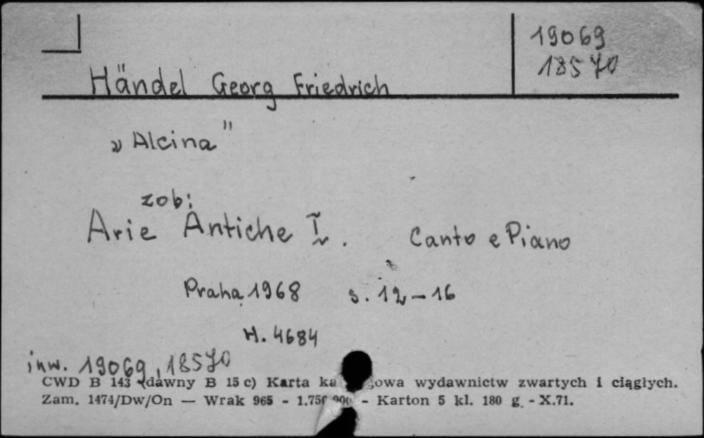 19069
18570
Händel Georg Friedrich
„Alcina"
zob:
Arie Antiche I. Canto e Piano
Praha 1968 s. 12-16
H. 4684
inw. 19069, 18570
CWD B 143 (dawny B 15 c) Karta ka owa wydawnictw zwartych i ciągłych.
Zam. 1474/Dw/On — Wrak 965 - 1.750 000 - Karton 5 kl. 180 g. - X.71.